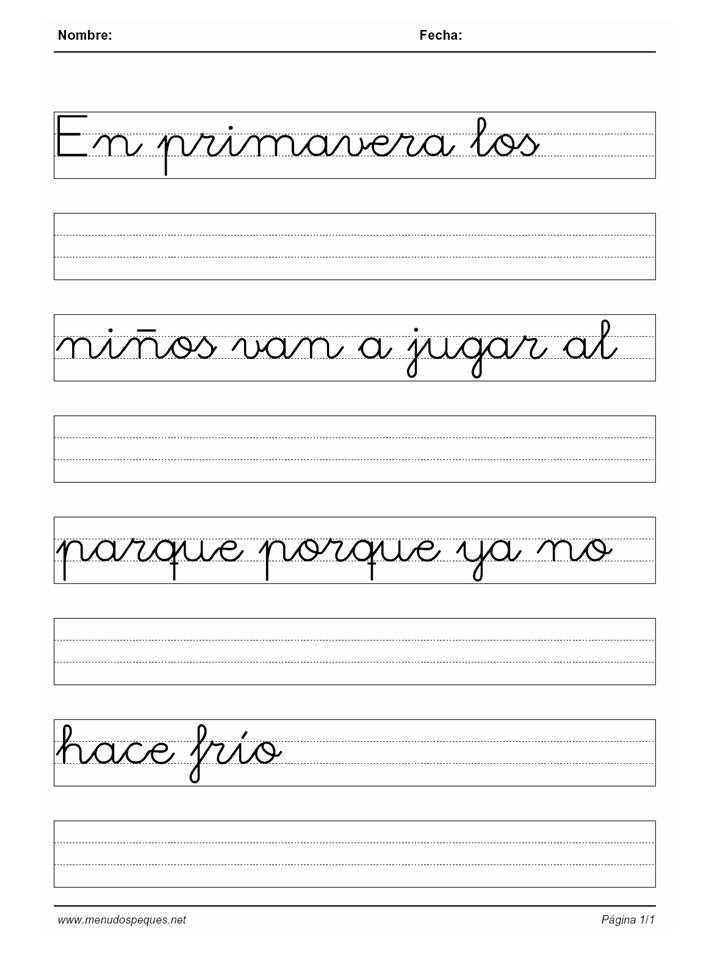 Nombre: Fecha:
En primavera los
niños van a jugar al
parque porque ya no
hace frío
www.menudospeques.net Página 1/1